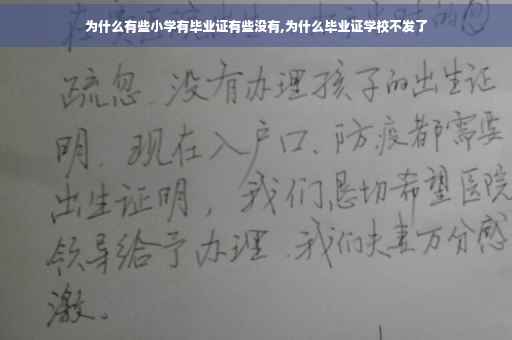 为什么有些小学有毕业证有些没有,为什么毕业证学校不发了
疏忽.没有办理孩子的出生证
明.现在入户口、防疫都需要
出生证明，我们恳切希望医院
领导给予办理.我们夫妻万分感
激。